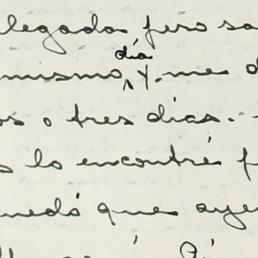 legada pero sa
mismo día y me d
os o tres dias.
s lo encontré f
uedó que aye